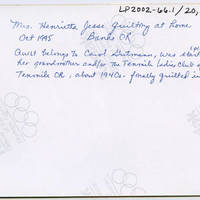 LP2002-66.1/20,
Mrs. Henrietta Jesse Quilting at home
Oct 1995 Banks OR
Quilt belongs to Carol Gutmann, was start
her grandmother and/or the Tenmile Ladies Club of
Tenmile OR, about 1940s. finally quilted in